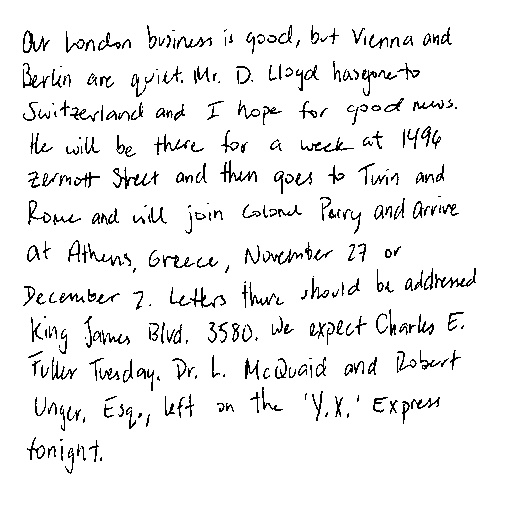 Our London business is good, but Vienna and
Berlin are quiet. Mr. D. Lloyd has gone to
Switzerland and I hope for good news.
He will be there for a week at 1496
Zermott Street and then goes to Turin and
Rome and will join Colonel Parry and arrive
at Athens, Greece, November 27 or
December 2. Letters there should be addressed
King James Blvd. 3580. We expect Charles E.
Fuller Tuesday. Dr. L. McQuaid and Robert
Unger, Esq., left on the 'Y.X.' Express
tonight.